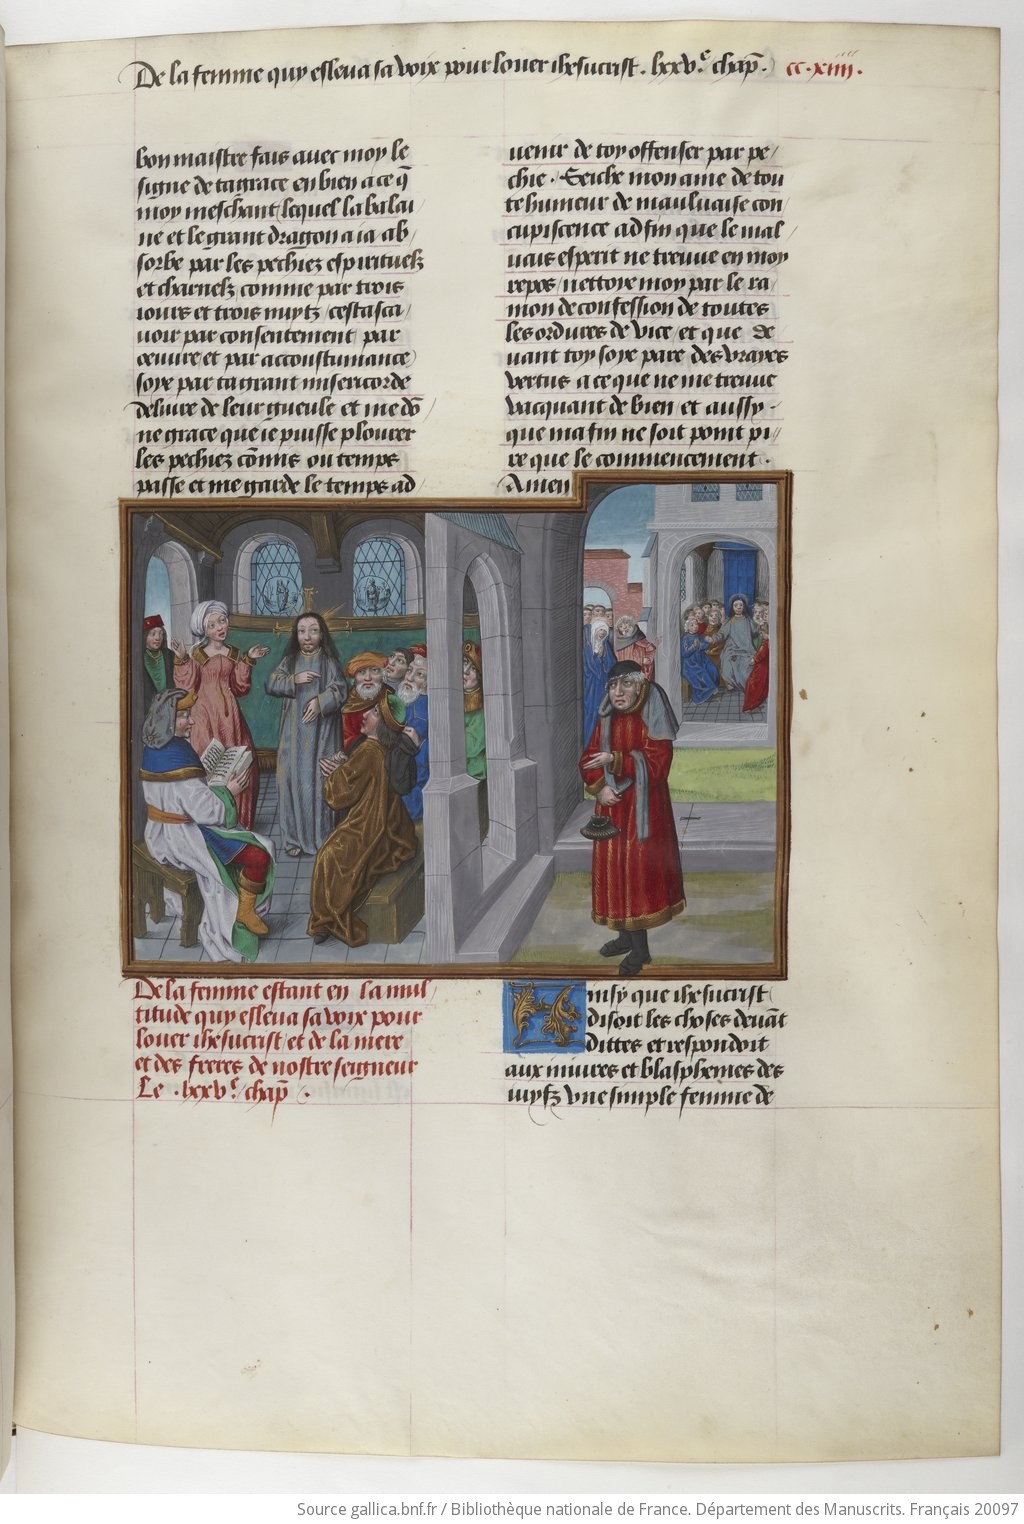 De la femme quy esleva sa voix pour louer ihesucrist. lxxv.e chap̄. cc.xiiii.
bon maistre fais avec moy le
signe de ta grace en bien a ce q̄
moy meschant lequel la balai
ne et le grant dragon a ia ab
sorbe par les pechiez espirituelz
et charnelz comme par trois
iours et trois nuytz / cest asca
uoir par consentement par
œuure et par accoustumance
soye par ta grant misericorde
deliure de leur gueule et me dō
ne grace que ie puisse plourer
les pechiez cōmis ou temps
passe et me garde le temps ad
uenir de toy offenser par pe
chie. Seiche mon ame de tou
te humeur de mauluaise con
cupiscence ad fin que le mal
uais esperit ne treuue en moy
repos / nettoye moy par le ra
mon de confession de toutes
les ordures de vice et que de
uant toy soye pare des vrayes
vertus a ce que ne me treuue
vacquant de bien et aussy
que ma fin ne soit point pi
re que le commencement.
Amen
De la femme estant en la mul
titude quy esleua sa voix pour
louer ihesucrist et de la mere
et des freres de nostre seigneur
Le .lxxv.e chap̄.
Ainsy que ihesucrist
disoit les choses deuāt
dittes et respondoit
aux iniures et blasphemes des
iuyfz vne simple femme de
Source gallica.bnf.fr / Bibliothèque nationale de France. Département des Manuscrits. Français 20097